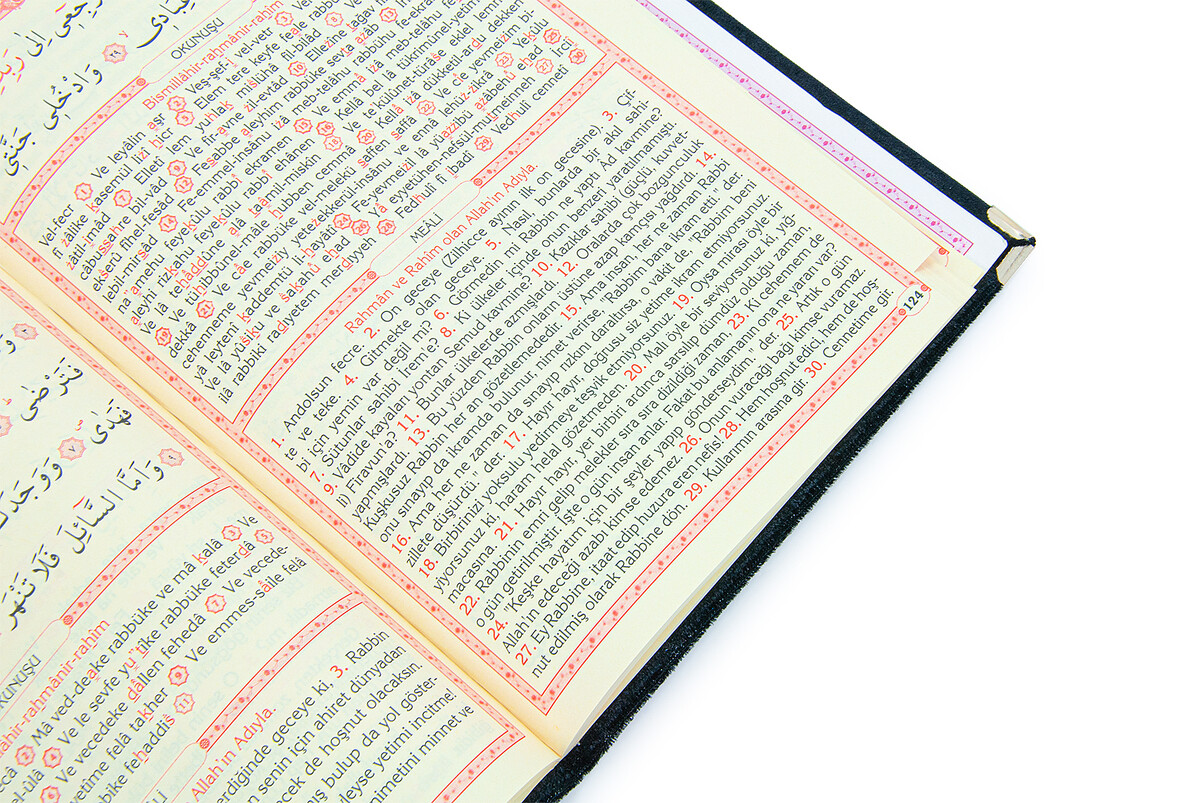 رْجِعِي إِلَى رَبِّكِ
عِبَادِي ٢٩ وَادْخُلِي جَنَّتِي
OKUNUŞU
Bismillâhir-rahmânir-rahîm
vel-fecri 1 Ve leyâlin aşr 2 Veş-şef'i vel-vetr 3
fî zâlike kasemül li zî hicr 5 Elem tere keyfe feale rabbü
zâtil-ımâd 7 Elletî lem yuhlak mislühâ fil-bilâd 8
câbussahra bil-vâd 9 Ve fir'avne zil-evtâd 10 Ellezîne tağav
ekserû fîhel-fesâd 12 Fesabbe aleyhim rabbüke sevta azâb 13
lebil-mirsâd 14 Feemmel-insânu izâ meb-telâhu rabbühu fe-ekra
na amehu fey kûlu rabbî ekramen 15 Ve emmâ izâ meb-telâhu fe
aleyhi rizkahu feyekûlu rabbî ehânen 16 Kellâ bel lâ tükrimûnel-yetîm
Ve lâ tehâddûne alâ taâmil-miskîn 18 Ve te'külûnet-türâse eklel lemm
19 Ve tühibbûnel-mâle hubben cemmâ 20 Kellâ izâ dükketil-ardu dekken
dekkâ 21 Ve câe rabbüke vel-melekü saffen saffâ 22 Ve cîe yevmeizim bi-
cehenneme yevmeiziy yetezekkerül-insânü ve ennâ lehüz-zikrâ 23 Yekûlü
yâ leytenî kaddemtü li hayâtî 24 Fe-yevmeizil lâ yüazzibü azâbehû ehad 25
Ve lâ yûsiku ve sakahû ehad 26 Yâ eyyetühen-nefsül-mutmeinneh 27 irci
ilâ rabbiki radıyetem merdiyyeh 28 Fedhulî fî ibadî 29 Vedhuli cennetî 30
MEÂLİ
Rahmân ve Rahîm olan Allah'ın Adıyla.
1. Andolsun fecre, 2. On geceye (Zilhicce ayının ilk on gecesine), 3. Çif-
te ve teke, 4. Gitmekte olan geceye. 5. Nasıl, bunlarda bir akıl sahi-
bi için yemin var değil mi? 6. Görmedin mi Rabbin ne yaptı Âd kavmine?
7. Sütunlar sahibi İreme? 8. Ki ülkeler içinde onun benzeri yaratılmamıştı.
9. Vâdide kayaları yontan Semud kavmine? 10. Kazıklar sahibi (güçlü, kuvvet-
li) Firavun'a? 11. Bunlar ülkelerde azmışlardı. 12. Oralarda çok bozgunculuk
yapmışlardı. 13. Bu yüzden Rabbin onların üstüne azap kamçısı yağdırdı. 14.
Kuşkusuz Rabbin her an gözetlemededir. 15. Ama insan, her ne zaman Rabbi
onu sınayıp da ikramda bulunur, nimet verirse, "Rabbim bana ikram etti." der.
16. Ama her ne zaman da sınayıp rızkını daraltırsa, o vakit de, "Rabbim beni
zillete düşürdü." der. 17. Hayır hayır, doğrusu siz yetime ikram etmiyorsunuz.
18. Birbirinizi yoksulu yedirmeye teşvik etmiyorsunuz. 19. Oysa mirası öyle bir
yiyorsunuz ki, haram, helal gözetmeden. 20. Malı öyle bir seviyorsunuz ki, yığ-
macasına. 21. Hayır hayır, yer birbiri ardınca sarsılıp dümdüz olduğu zaman,
22. Rabbinin emri gelip melekler sıra sıra dizildiği zaman, 23. Ki cehennem de
o gün getirilmiştir. İşte o gün insan anlar. Fakat bu anlamanın ona ne yararı var?
24. "Keşke hayatım için bir şeyler yapıp gönderseydim." der. 25. Artık o gün
Allah'ın edeceği azabı kimse edemez. 26. Onun vuracağı bağı kimse vuramaz.
27. Ey Rabbine, itaat edip huzura eren nefis. 28. Hem hoşnut edici, hem de hoş-
nut edilmiş olarak Rabbine dön. 29. Kullarımın arasına gir. 30. Cennetime gir.
124
فَتَرْضَى
فَهَدَى ٧ وَوَجَدَكَ
٩ وَأَمَّا السَّائِلَ فَلَا تَنْهَرْ
OKUNUŞU
lâhir-rahmânir-rahîm
3 Mâ ved-deake rabbüke ve mâ kalâ 3 Ve
el-ûlâ 4 Ve le sevfe yu'tîke rabbüke feterdâ 5
6 Ve vecedeke dâllen fehedâ 7 Ve vecede-
yetîme felâ takher 9 Ve emmes-sâile felâ
bike fehaddis 11
Allah'ın Adıyla.
erdiğinde geceye ki, 3. Rabbin
senin için ahiret dünyadan
ecek de hoşnut olacaksın.
mış bulup da yol göster-
leyse yetimi incitme!
nimetini minnet ve